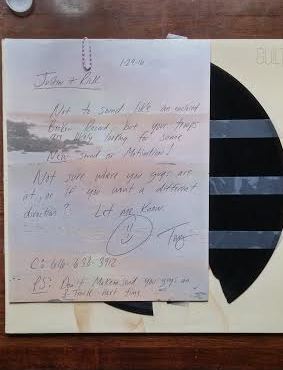 1-29-16
Justin + Rick
Not to sound like an
Broken Record, but your troops
are still looking for some
New sound or Motivation!
Not sure where you guys are
at, or if you want a different
direction? Let me know.
C: 616-633-3912
PS: Don't Make me send you guys an
I Told next time
GUILT